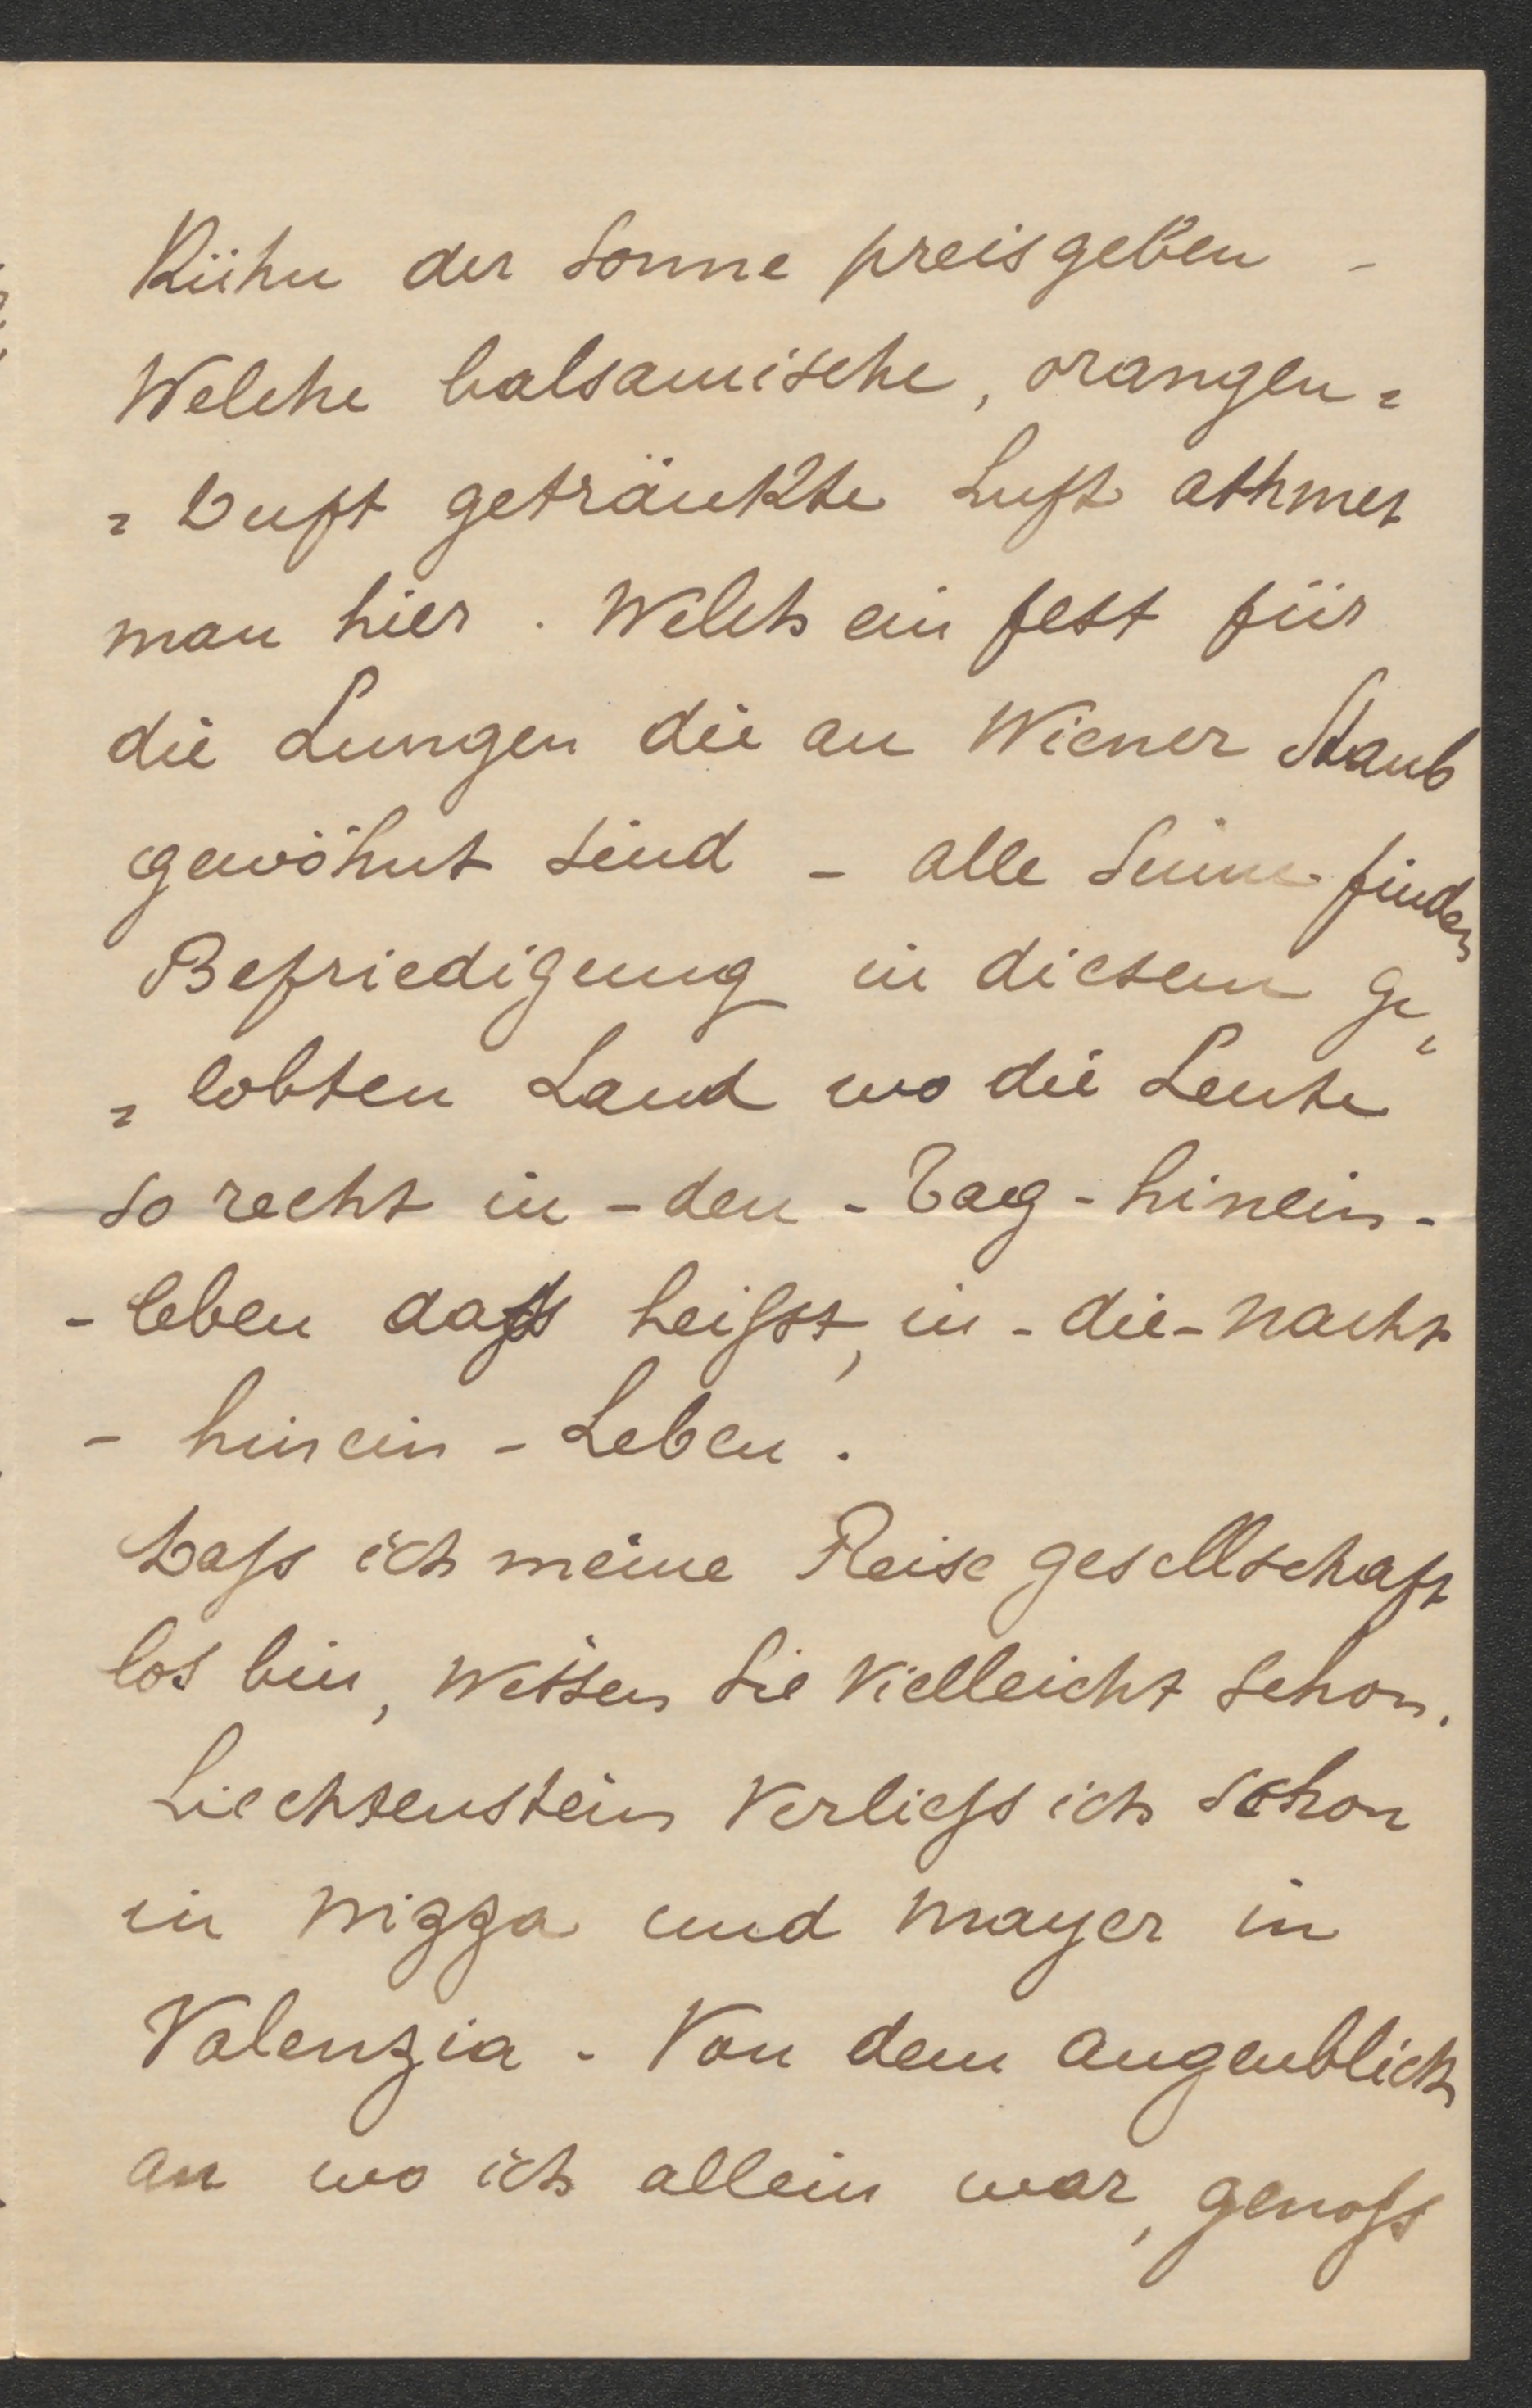 Kühn der Sonne preisgeben -
Welche balsamische, orangen=
=Duft getränkte Luft athmet
man hier. Welch ein fest für
die Lungen die an Wiener Staub
gewöhnt sind - alle Sinne finden
Befriedigung in diesem ge=
=lobten Land wo die Leute
so recht in-den-Tag-hinein-
-leben dass heisst, in-die-Nacht
-hinein-Leben.
Dass ich meine Reisegesellschaft
los bin, wissen Sie vielleicht schon.
Liechtenstein verliess ich schon
in Nizza und Mayer in
Valenzia. Von dem Augenblick
an wo ich allein war, genoss